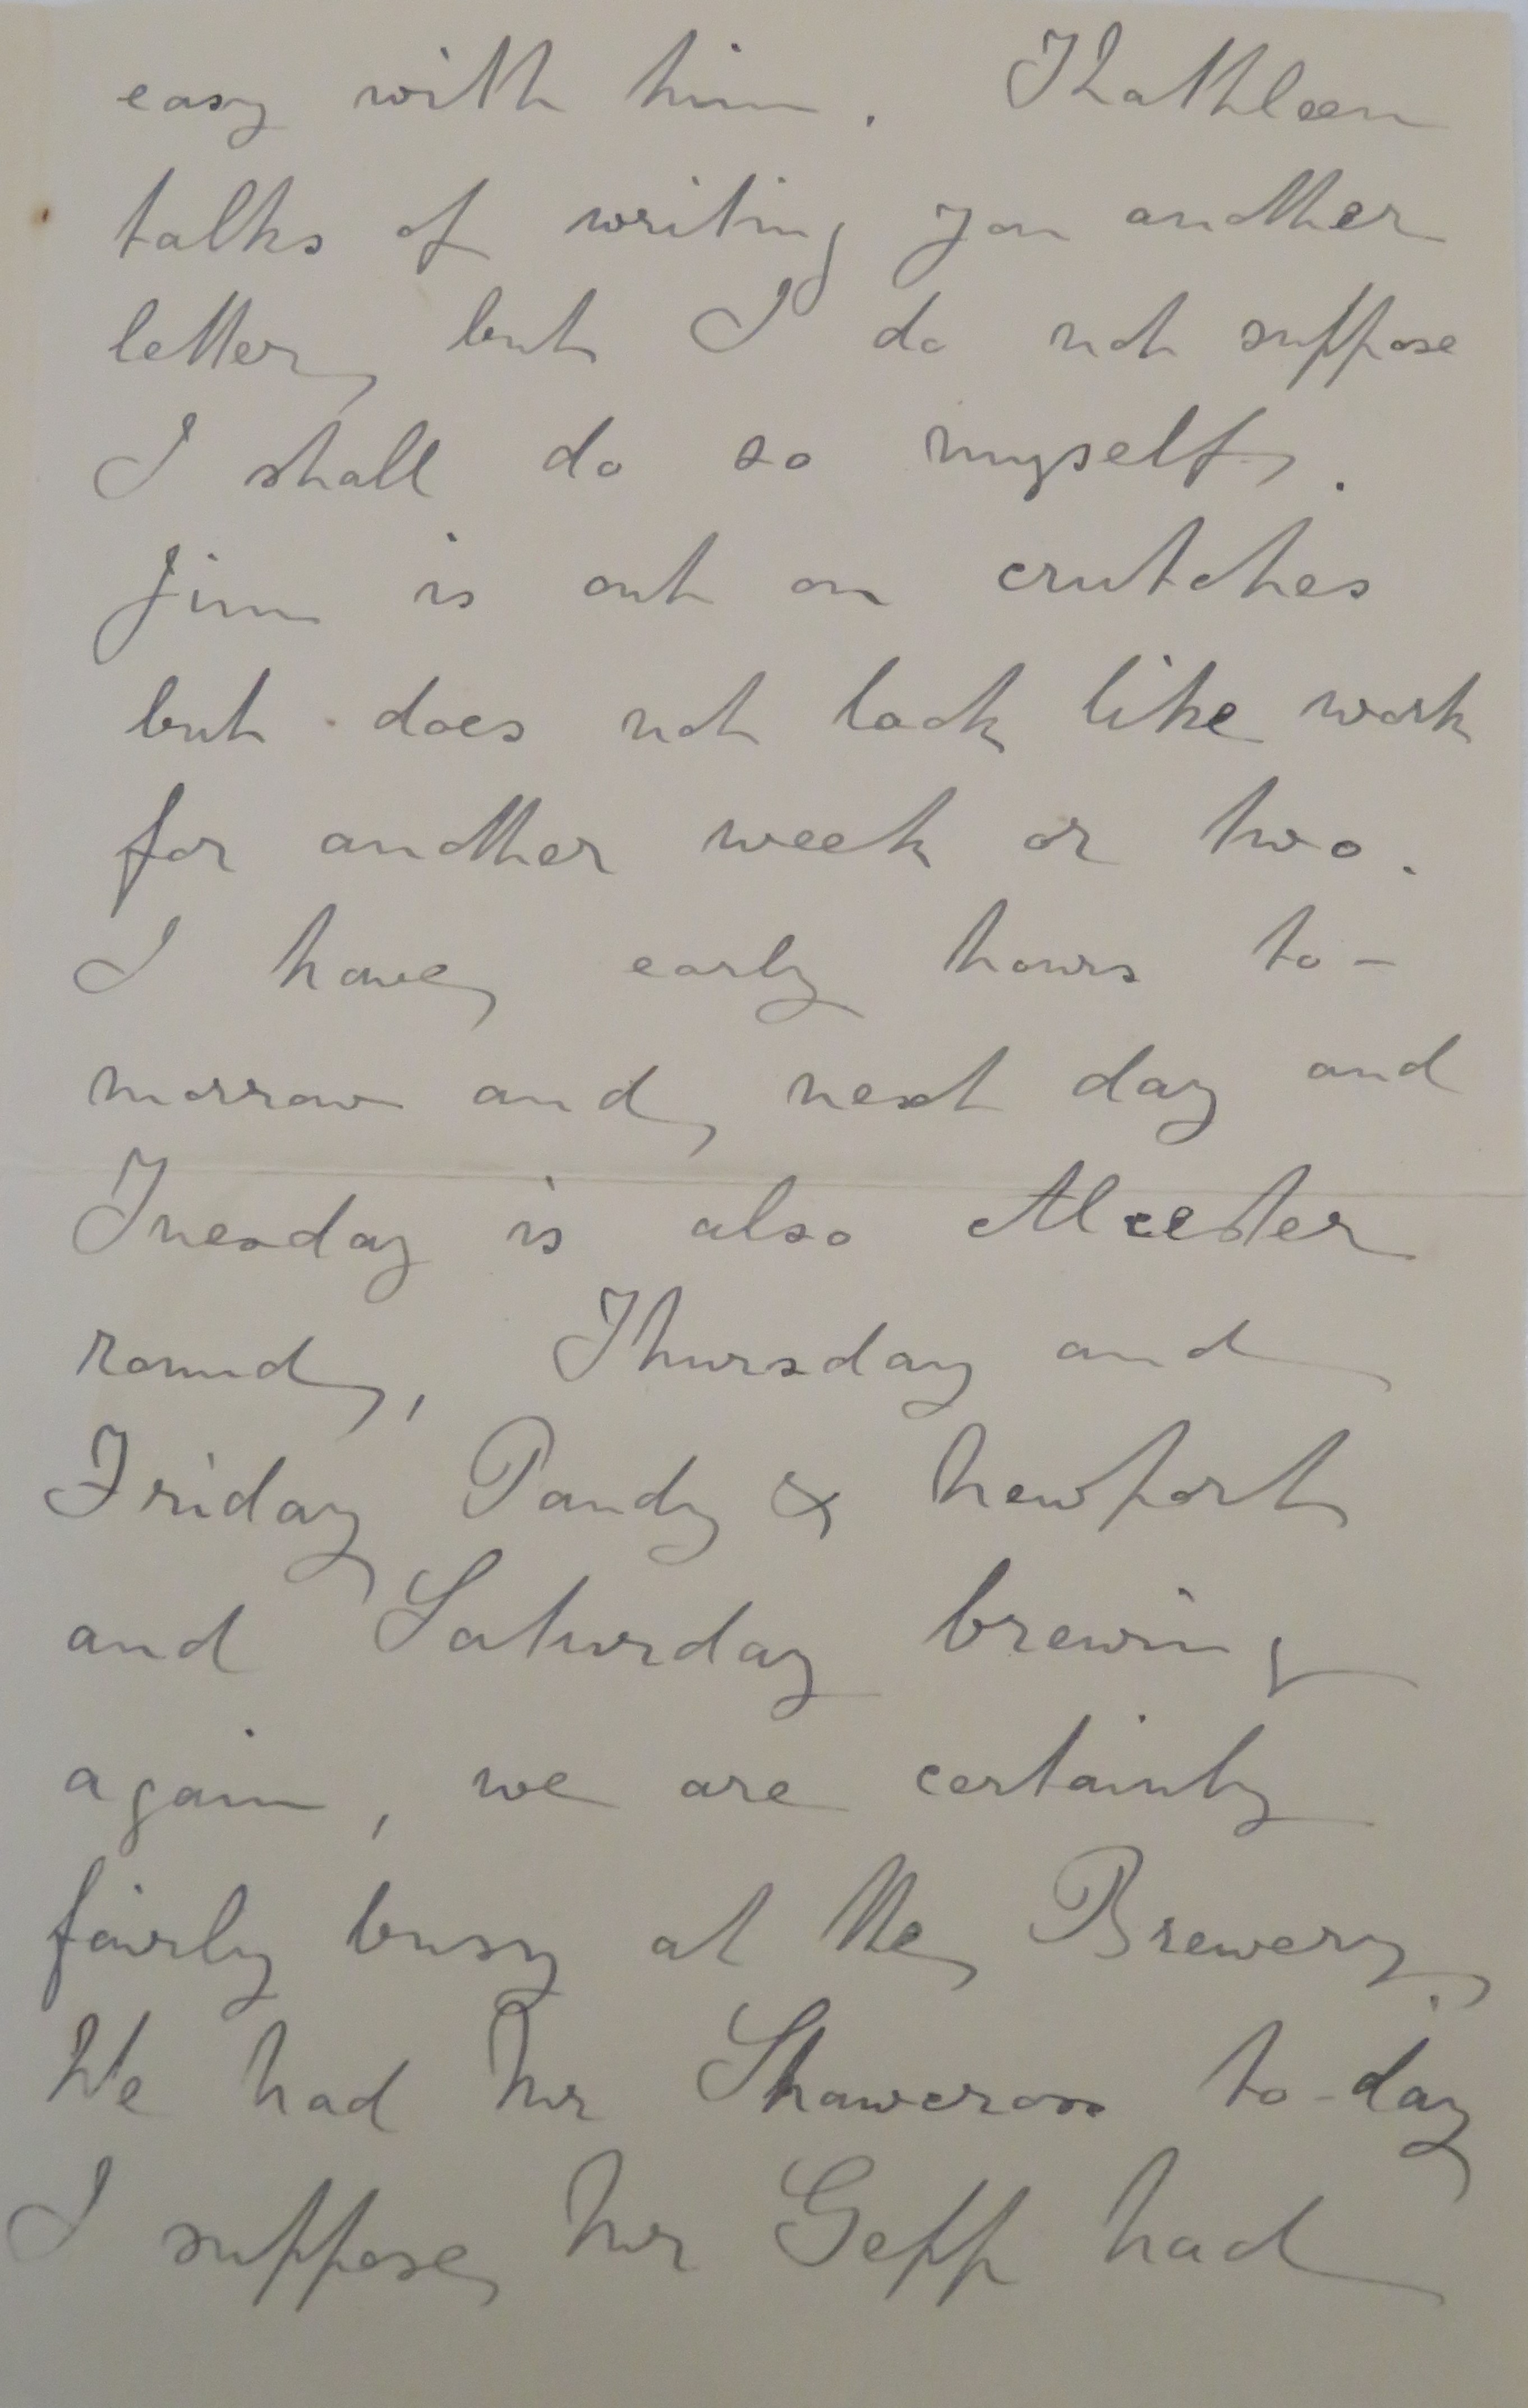 easy with him. Kathleen
talks of writing you another
letter but I do not suppose
I shall do so myself.
Jim is out on crutches
but does not look like work
for another week or two.
I have early hours to-
morrow and next day and
Tuesday is also Alcester
round, Thursday and
Friday Pandy & Newport
and Saturday brewing
again, we are certainly
fairly busy at the Brewery.
We had Mr Shawcross to-day
I suppose Mr Gepp had